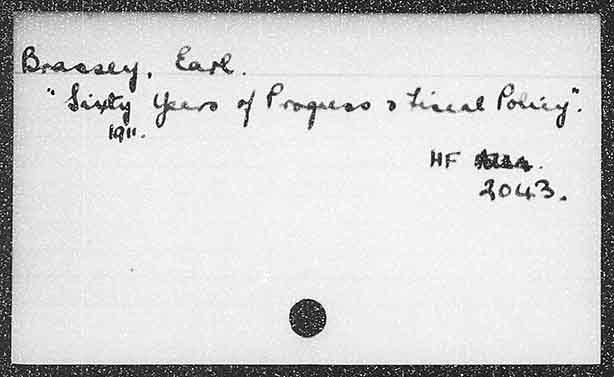 Brassey, Earl.
"Sixty Years of Progress & Fiscal Policy".
1911.
HF
2043.